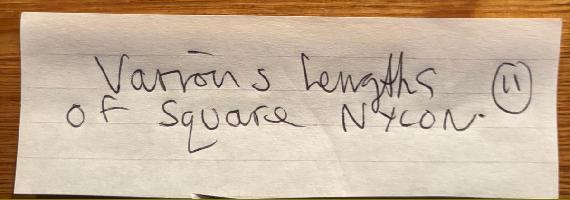 Various Lengths 11
of Square NYLON.